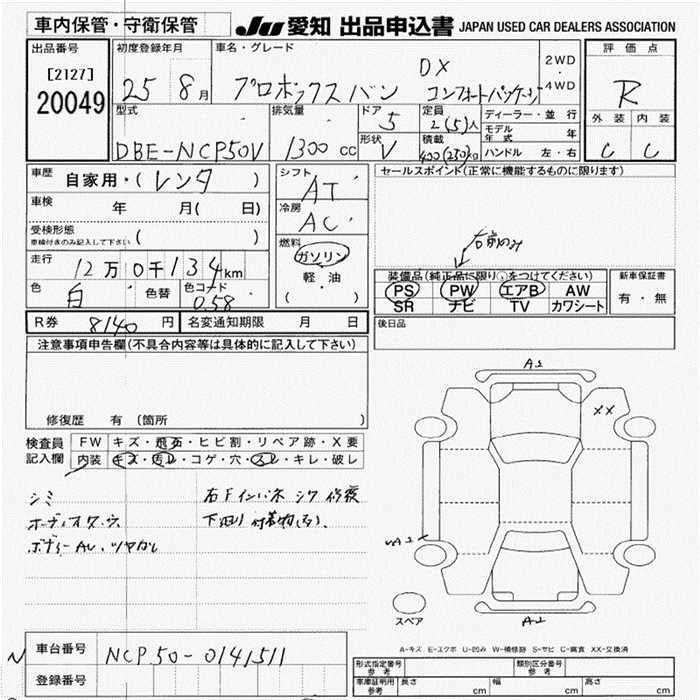 車内保管・守衛保管
JU 愛知 出品申込書 JAPAN USED CAR DEALERS ASSOCIATION
出品番号 初度登録年月 車名・グレード 評価点
[2127] 20049
25 8月 プロボックスバン DX コンフォートパッケージ 2WD・4WD
R
外装 内装
C C
型式 排気量 ドア 定員 ディーラー・並行
DBE-NCP50V 1300cc 5 2(5)人
モデル年式 年
形状 積載 ハンドル 左・右
V 400(250)kg
車歴 自家用・(レンタ )
車検 年 月( 日)
受検形態 ( )
車検付きのみ記入して下さい
走行 12万0千134km
色 白 色替 色コード 058
R券 8140円 名変通知期限 月 日
シフト AT
冷房 AC
燃料 ガソリン
軽・油
( ・ )
セールスポイント(正常に機能するものに限ります)
右前のみ
装備品(純正品に限り○をつけてください) 新車保証書
PS PW エアB AW 有・無
SR ナビ TV カワシート
後日品
注意事項申告欄(不具合内容等は具体的に記入して下さい)
修復歴 有 (箇所 )
検査員記入欄
FW キズ・飛石・ヒビ割・リペア跡・X要
内装 キズ・汚レ・コゲ・穴・スレ・キレ・破レ
シミ
右Fインパネ シワ 修復
下回り 付着物
A1
XX
A2
A2
スペア
A-キズ E-エクボ U-凹み W-補修跡 S-サビ C-腐食 XX-交換済
車台番号 NCP50-0141511
登録番号
N
型式指定番号 参考 類別区分番号 参考
車庫証明用 参考 長さ cm 幅 cm 高さ cm